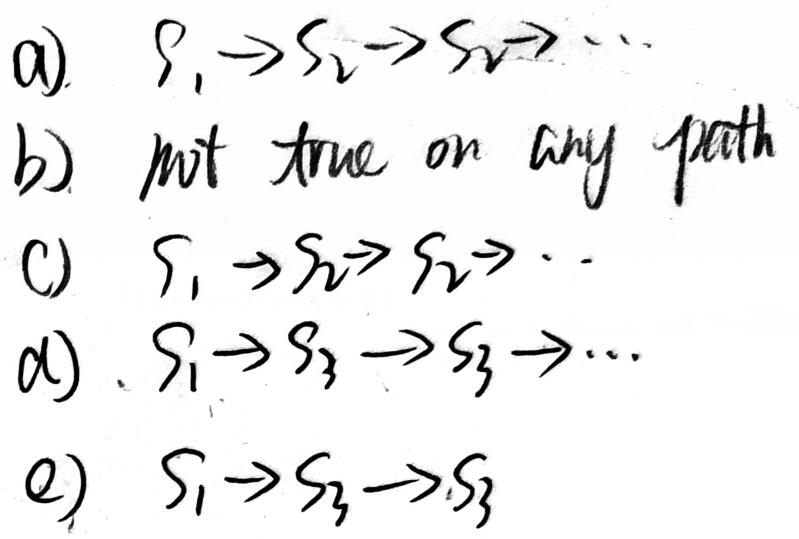 a). S₁ → S₂ → S₂ → ...
b) not true on any path
c) S₁ → S₂ → S₂ → ...
d) S₁ → S₃ → S₃ → ...
e) S₁ → S₃ → S₃